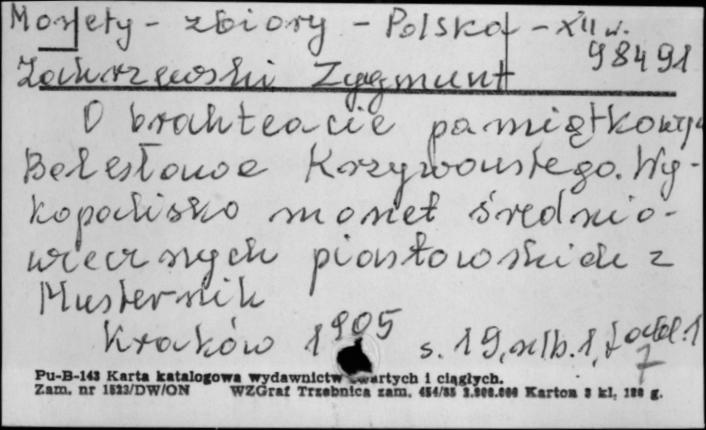 Monety - zbiory - Polska - XII w.
98491
Zakrzewski Zygmunt
O brakteacie pamiątkowym
Bolesława Krzywoustego. Wy-
kopalisko monet średnio-
wiecznych piastowskich z
Musternik
Kraków 1905 s. 19, nlb. 1,
7
Pu-B-143 Karta katalogowa wydawnictw zwartych i ciągłych.
Zam. nr 1523/DW/ON WZGraf Trzebnica zam. 454/85 Karton 3 kl. g.